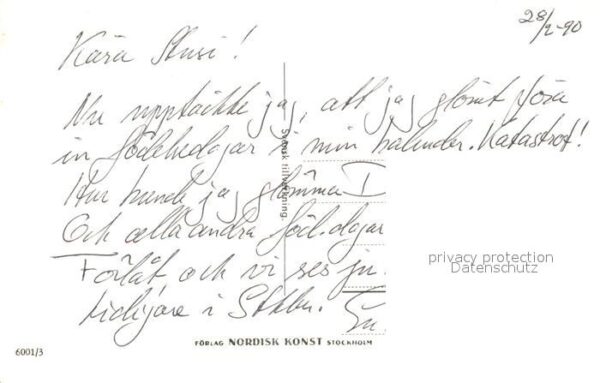 28/2-90
Kära Stusi!
Nu upptäckte jag, att jag glömt föra
in födelsedagar i min kalender. Katastrof!
Hur kunde jag glömma D
Och alla andra föd.dagar
Förlåt och vi ses ju
tidigare i Sthlm.
Svensk tillverkning.
privacy protection
Datenschutz
FÖRLAG NORDISK KONST STOCKHOLM
6001/3